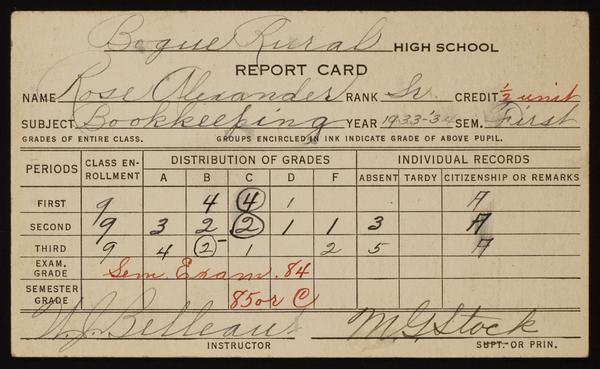 Bogue Rural HIGH SCHOOL
REPORT CARD
NAME Rose Alexander RANK Sr. CREDIT 1/2 unit
SUBJECT Bookkeeping YEAR 1933-'34 SEM. First
GRADES OF ENTIRE CLASS. GROUPS ENCIRCLED IN INK INDICATE GRADE OF ABOVE PUPIL.
PERIODS CLASS EN-ROLLMENT DISTRIBUTION OF GRADES INDIVIDUAL RECORDS
A B C D F ABSENT TARDY CITIZENSHIP OR REMARKS
FIRST 9 4 4 1 A
SECOND 9 3 2 2 1 1 3 A
THIRD 9 4 2- 1 2 5 A
EXAM. GRADE Sem. Exam. 84
SEMESTER GRADE 85 or C
W. J. Belleau M. G. Stock
INSTRUCTOR SUPT. OR PRIN.